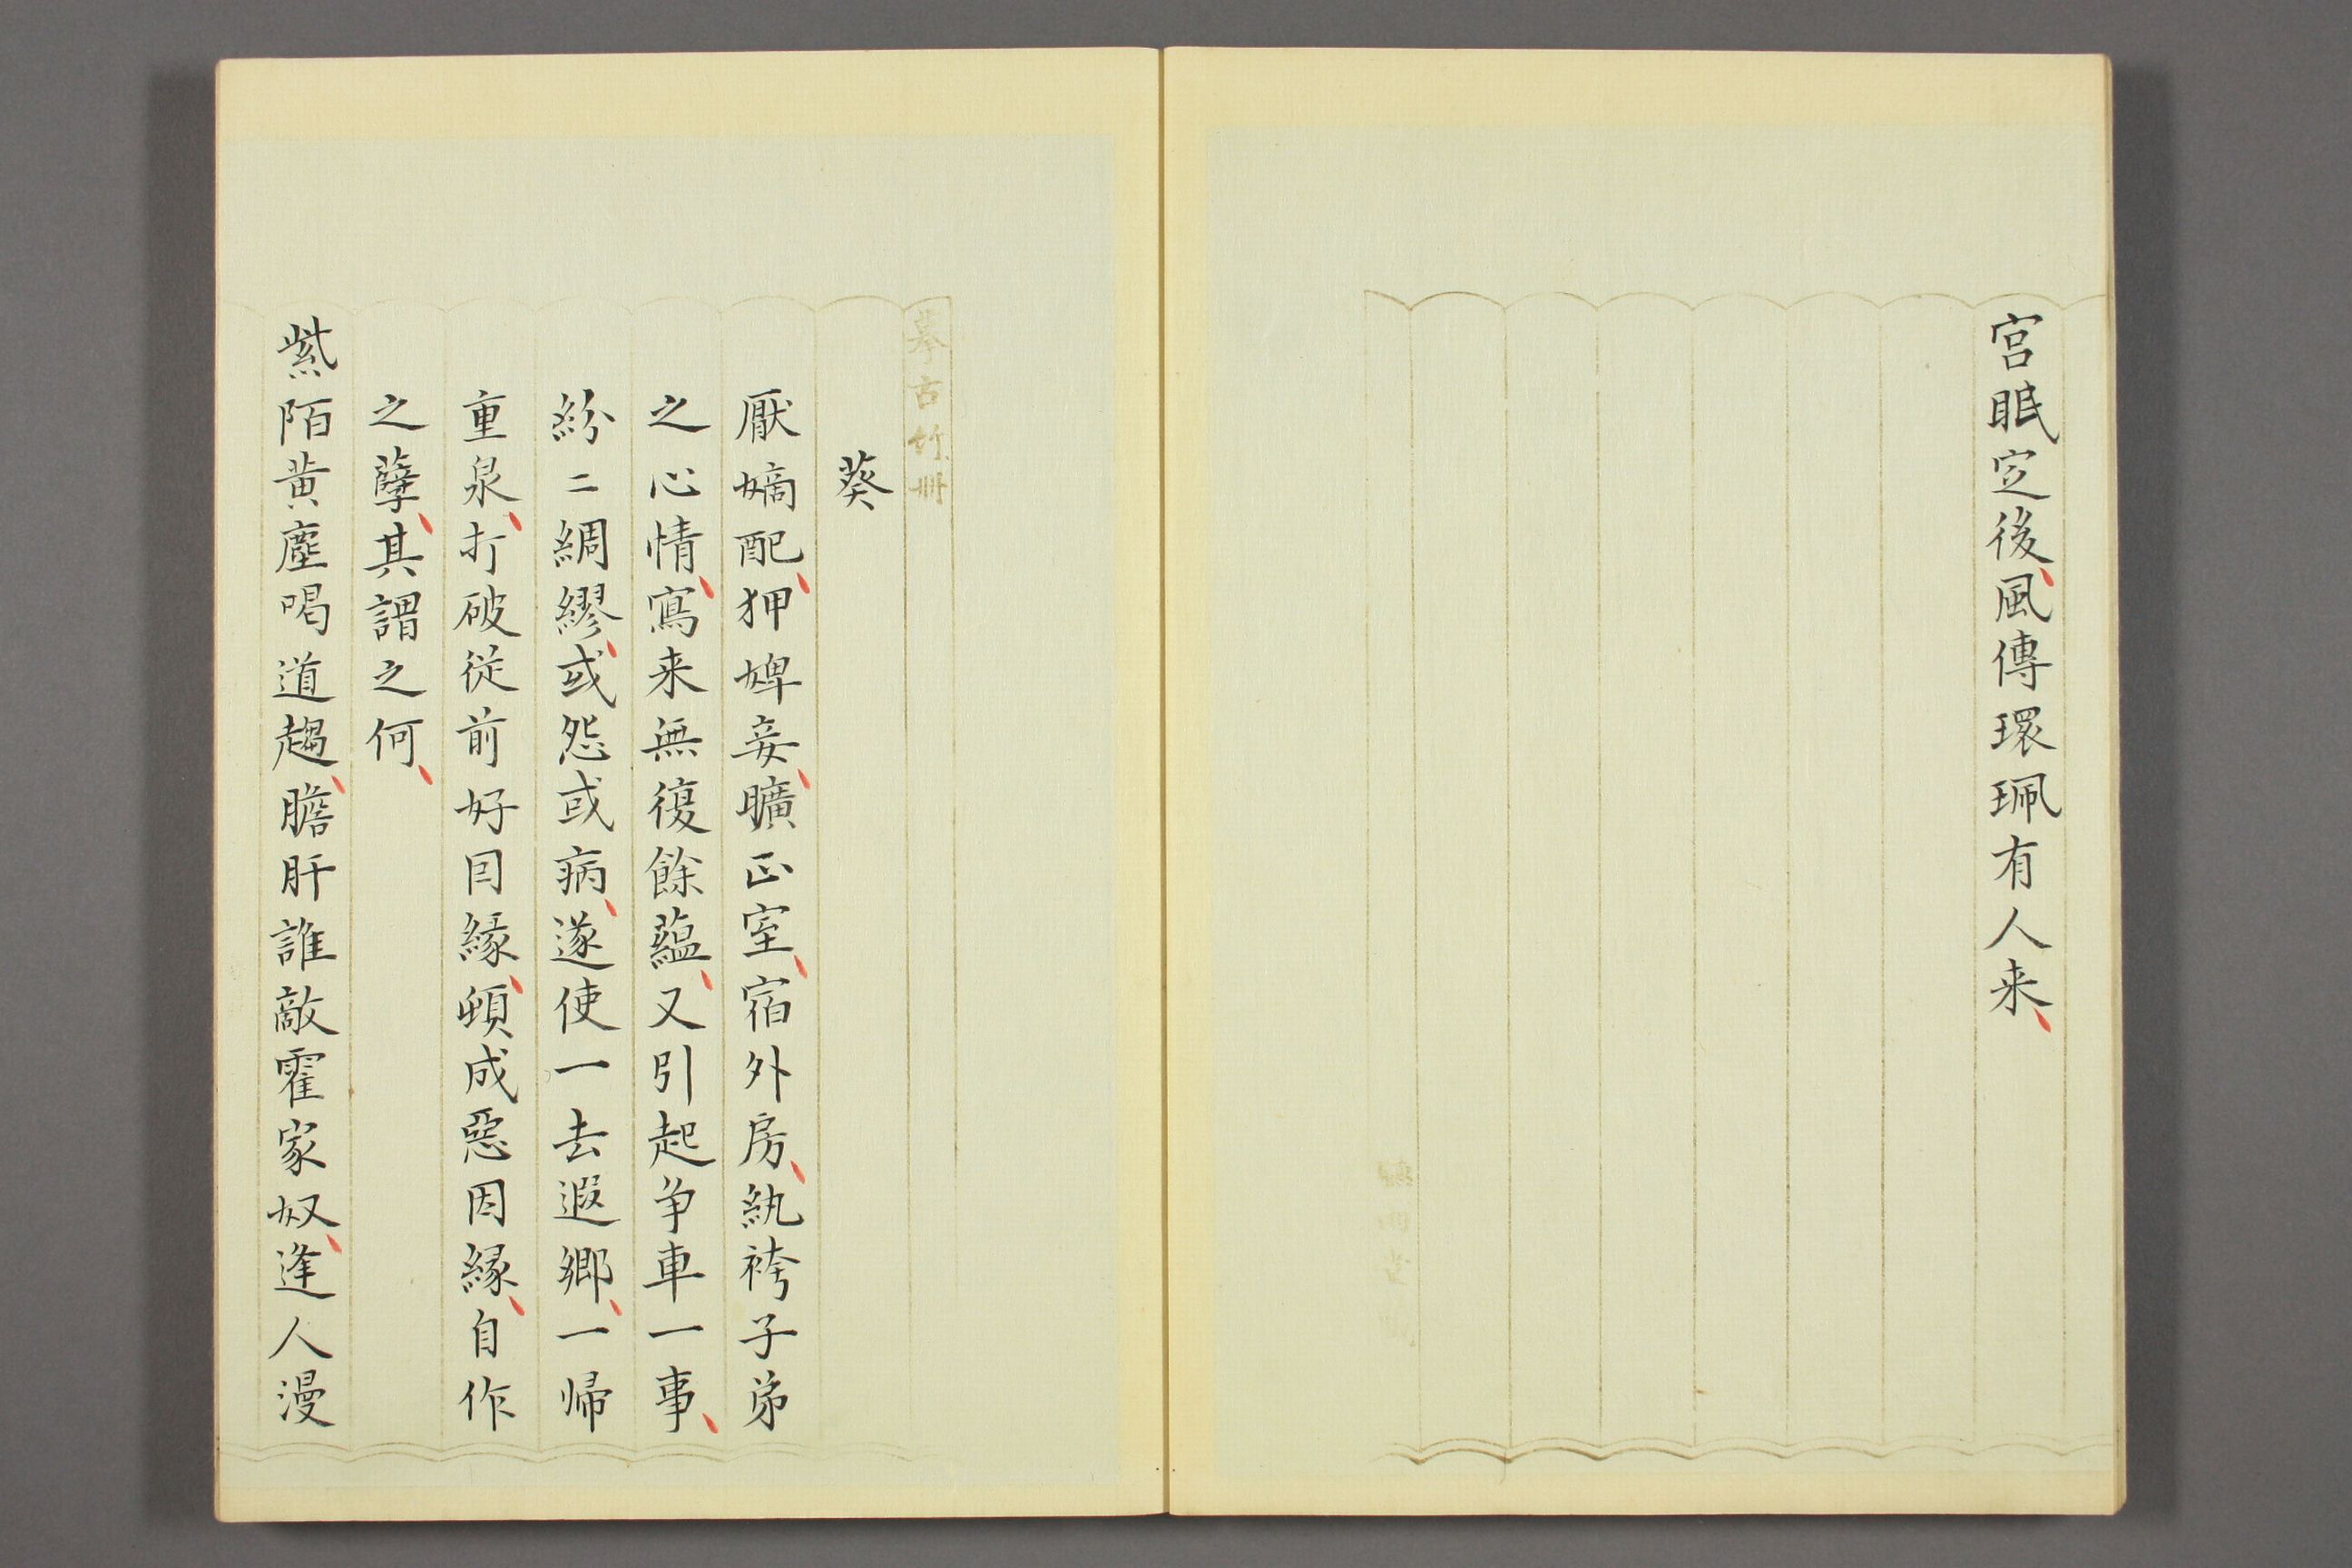 宮眠定後風傳環珮有人来
摹古竹冊
葵
厭嫡配狎婢妾曠正室宿外房紈袴子弟
之心情寫来無復餘蘊又引起争車一事
紛〻綢繆或怨或病遂使一去遐鄉一帰
重泉打破従前好因縁頓成惡因縁自作
之孽其謂之何
紫陌黄塵喝道趨膽肝誰敵霍家奴逢人漫